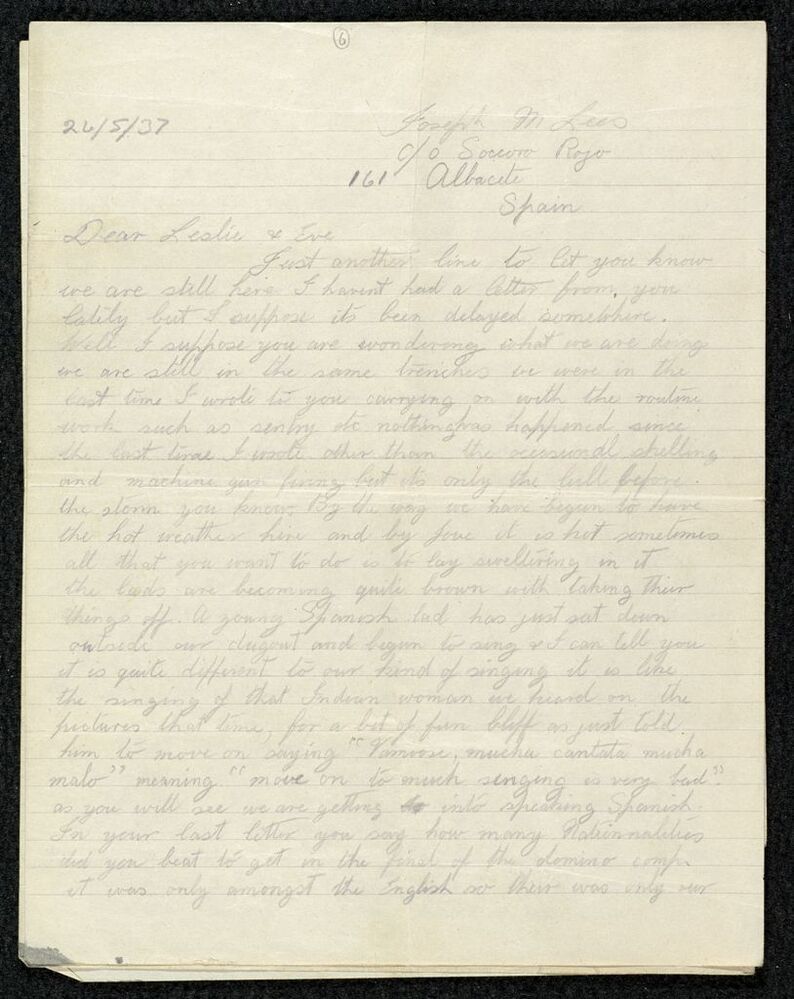 6
26/5/37
Joseph M Lees
c/o Soccoro Rojo
161 Albacete
Spain
Dear Leslie & Eve
Just another line to let you know
we are still here I havent had a letter from, you
latily but I suppose its been delayed somewhere.
Well I suppose you are wondering what we are doing
we are still in the same trenches we were in the
last time I wrote to you carrying on with the routine
work such as sentry etc nothing has happened since
the last time I wrote other than the occasional shelling
and machine gun firing but its only the lull before
the storm you know. By the way we have begun to have
the hot weather here and by jove it is hot sometimes
all that you want to do is to lay sweltiring in it
the lads are becoming quite brown with taking their
things off. A young Spanish lad has just sat down
outside our dugout and begun to sing & I can tell you
it is quite different to our kind of singing it is like
the singing of that Indian woman we heard on the
pictures that time, for a bit of fun Cliff as just told
him to move on saying "Vamoose, mucha cantata mucha
malo" meaning "move on to much singing is very bad".
as you will see we are getting into speaking Spanish.
In your last letter you say how many Nationnalities
did you beat to get in the final of the domino comp.
it was only amongst the English so their was only our